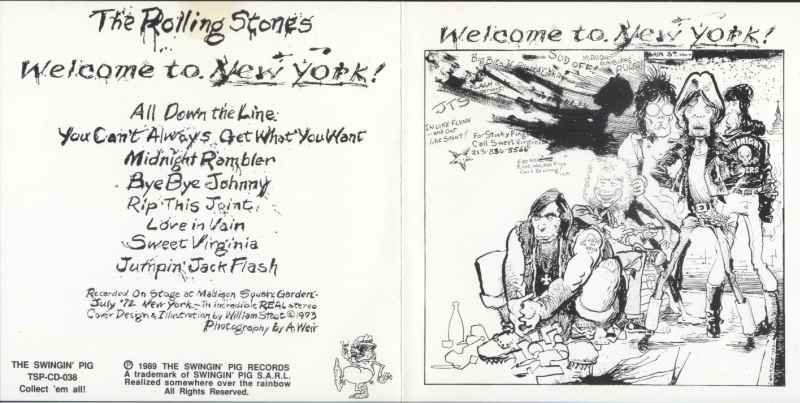 The Rolling Stones
Welcome to New York!
All Down the Line
You Can't Always Get What You Want
Midnight Rambler
Bye Bye Johnny
Rip This Joint
Love in Vain
Sweet Virginia
Jumpin' Jack Flash
Recorded On Stage at Madison Square Garden-
July '72 New York - In incredible REAL stereo
Cover Design & Illustration by William Stout © 1973
Photography by A. Weir
THE SWINGIN' PIG
TSP-CD-038
Collect 'em all!
℗ 1989 THE SWINGIN' PIG RECORDS
A trademark of SWINGIN' PIG S.A.R.L.
Realized somewhere over the rainbow
All Rights Reserved.
Welcome to New York!
SOD OFF
JTS
IN LIKE FLYNN
For Sticky Fing
Call Sweet Virginia
MIDNIGHT